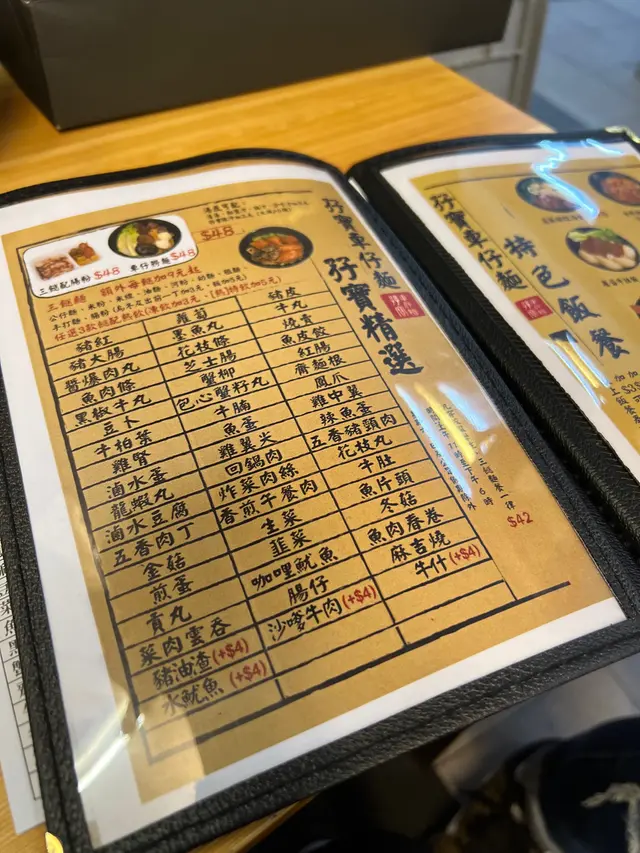 孖寶車仔麵
孖寶精選
$48
三餸配腸粉 $48
車仔撈麵 $48
三餸麵 額外每餸加9元起
任選3款餸配熱飲(凍飲加3元)
豬紅 蘿蔔 豬皮
豬大腸 墨魚丸 牛丸
醬爆肉丸 花枝條 燒賣
魚肉條 芝士腸 魚皮餃
黑椒牛丸 蟹柳 紅腸
豆卜 包心蟹籽丸 齋麵根
牛柏葉 牛腩 鳳爪
雞腎 魚蛋 雞中翼
滷水蛋 雞翼尖 辣魚蛋
龍蝦丸 回鍋肉 五香豬頭肉
滷水豆腐 炸菜肉絲 花枝丸
五香肉丁 香煎午餐肉 牛肚
金菇 生菜 魚片頭
煎蛋 韮菜 冬菇
貢丸 咖哩魷魚 魚肉春卷
菜肉雲吞 腸仔 麻吉燒
豬油渣(+$4) 沙嗲牛肉(+$4) 牛什(+$4)
水魷魚(+$4)
$42
孖寶車仔麵
特色飯餐